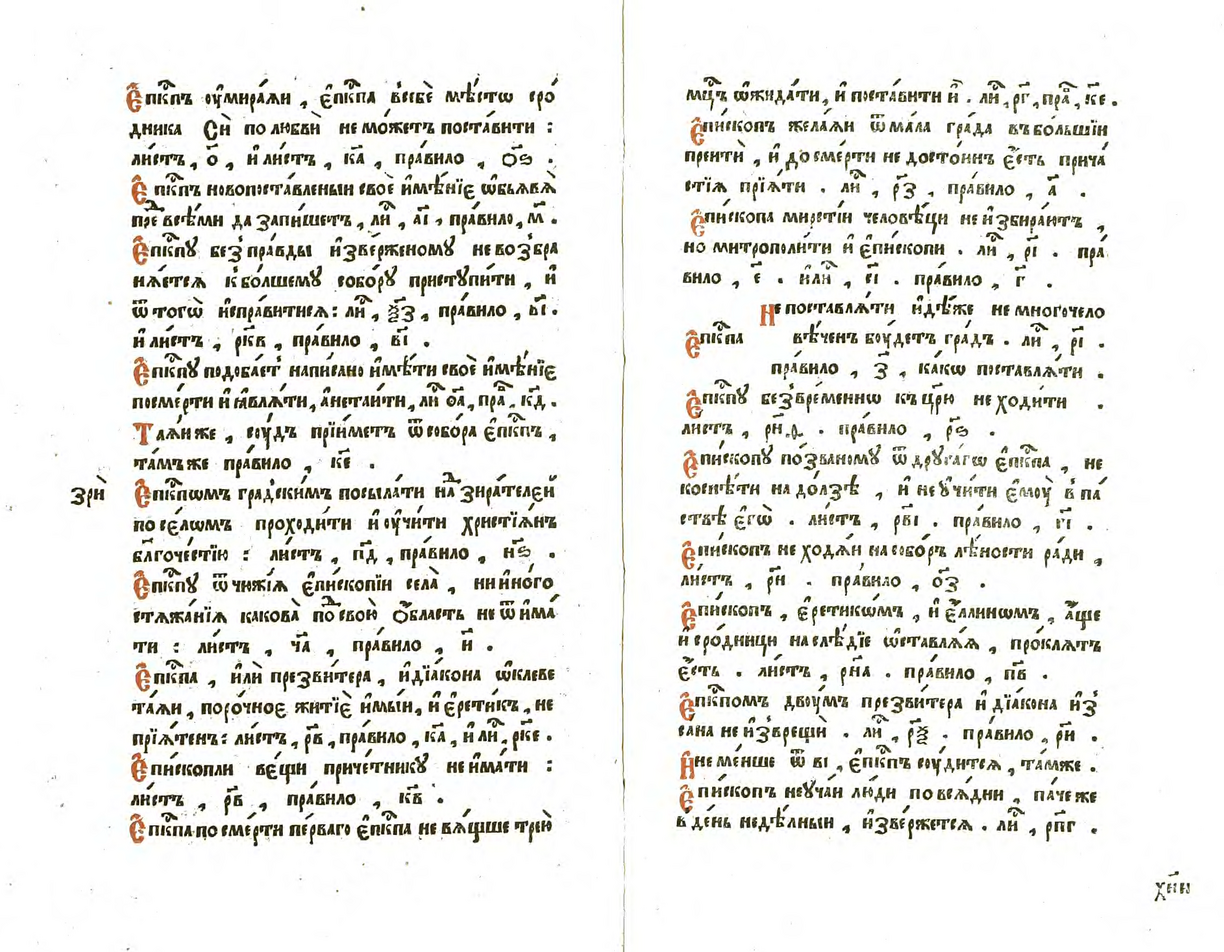 Е҆пⷭ҇кпъ ᲂу҆мира́ѧи , є҆пⷭ҇кпа в̾себѐ мѣ́стѡ сро́
дника Сѝ по любвѝ не мо́жетъ поста́вити :
ли́стъ , о҃ , и҆ ли́стъ , ка҃ , пра́вило , о҃ѕ .
Е҆пⷭ҇кпъ новопоста́вленыи своѐ и҆мѣ́нїе ѡ҆бьѧвѧ̀
преⷣ все́ми да запи́шетъ , лиⷭ҇ , а҃і , пра́вило , м҃ .
Е҆пⷭ҇кпꙋ без̾ пра́вды и҆зве́рженомꙋ не возбра
нѧ́етсѧ к̾ бо́лшемꙋ собо́рꙋ пристꙋпи́ти , и҆
ѿ тогѡ̀ и҆спра́витисѧ : лиⷭ҇ , ѯ҃з , пра́вило , в҃і .
и҆ ли́стъ , рк҃в , пра́вило , в҃і .
Е҆пⷭ҇кпꙋ подоба́етъ напи́сано и҆мѣ́ти своѐ и҆мѣ́нїе
посме́рти и҆ ꙗ҆влѧ́ти , а҆нетаи́ти , лиⷭ҇ о҃а , праⷡ , к҃д .
Таѧ́иже , сꙋ́дъ прїи́метъ ѿ собо́ра є҆пⷭ҇кпъ ,
та́мъже пра́вило , к҃е .
зрѝ
Е҆пⷭ҇кпѡмъ гра́дскимъ посыла́ти наⷣзира́телей
по се́лѡмъ проходи́ти и҆ ᲂу҆чи́ти христїѧ́нъ
бл҃гоче́стїю : ли́стъ , п҃д , пра́вило , н҃ѕ .
Е҆пⷭ҇кпꙋ ѿ чюжі́ѧ є҆писко́пїи села̀ , ни и҆но́го
стѧжа́нїѧ какова̀ поⷣ свою̀ ѻ҆́бласть не ѿ има́
ти : ли́стъ , ч҃а , пра́вило , и҃ .
Е҆пⷭ҇кпа , и҆лѝ презви́тера , и҆ дїа́кона ѡ҆клеве
та́ѧи , поро́чное житїѐ и҆мы́и , и҆ є҆ретикъ , не
прїѧ́тенъ : ли́стъ , р҃в , пра́вило , к҃а , и҆ лиⷭ҇ , рк҃е .
Е҆пи́скопли ве́щи приче́тникꙋ не и҆ма́ти :
ли́стъ , р҃в , пра́вило , к҃в .
Е҆пⷭ҇кпа по сме́рти пе́рваго є҆пⷭ҇кпа не вѧ́щше трею̀
мцⷭ҇ъ ѡ҆жида́ти , и҆ поста́вити и҆̀ . лиⷭ҇ , р҃г , праⷡ , к҃е .
Е҆пи́скопъ жела́ѧи ѿ ма́ла гра́да въ бо́льшїи
преитѝ , и҆ до сме́рти не досто́инъ є҆́сть прича́
стїѧ прїѧ́ти . лиⷭ҇ , р҃з , пра́вило , а҃ .
Е҆пи́скопа мирсті́и человѣ́цы не и҆збира́ютъ ,
но митрополи́ти и҆ є҆пи́скопи . лиⷭ҇ , р҃і . пра́
вило , е҃ . и҆лѝ , е҃і . пра́вило , г҃ .
Не поставлѧ́ти и҆дѣ́же не многочело
Е҆пⷭ҇кпа вѣ́ченъ бꙋ́детъ гра́дъ . лиⷭ҇ , р҃і .
пра́вило , з҃ , ка́кѡ поставлѧ́ти .
Е҆пⷭ҇кпꙋ без̾временнѡ къ цр҃ю̀ не ходи́ти .
ли́стъ , . пра́вило , р҃ѕ .
Е҆пи́скопꙋ по́званомꙋ ѿ дрꙋга́гѡ є҆пⷭ҇кпа , не
косне́ти на до́лзѣ , и҆ не ᲂу҆чи́ти є҆мꙋ̀ в̾ па́
ствѣ є҆гѡ̀ . ли́стъ , рв҃і . пра́вило , г҃і .
Е҆пи́скопъ не ходѧ́и на собо́ръ лѣ́ности ра́ди ,
ли́стъ , р҃н . пра́вило , о҃з .
Е҆пи́скопъ , є҆ретикѡ́мъ , и҆ є҆́ллинѡмъ , а҆́ще
и҆ сро́дницы наслѣ́дїе ѡ҆ставлѧ́ѧ , про́клѧтъ
є҆́сть . ли́стъ , рн҃а . пра́вило , п҃в .
Е҆пⷭ҇кпомъ двꙋ́мъ презви́тера и҆ дїа́кона и҆з̾
сана не и҆зврещѝ . лиⷭ҇ , р҃ѯ . пра́вило , р҃и .
И҆ не ме́нше ѿ в҃і , є҆пⷭ҇кпъ сꙋ́дитсѧ , та́мже .
Е҆пи́скопъ не ᲂу҆ча́и лю́ди по всѧ́ дни , па́че же
в̾ де́нь недѣ́лныи , и҆зве́ржетсѧ . лиⷭ҇ , рп҃г .